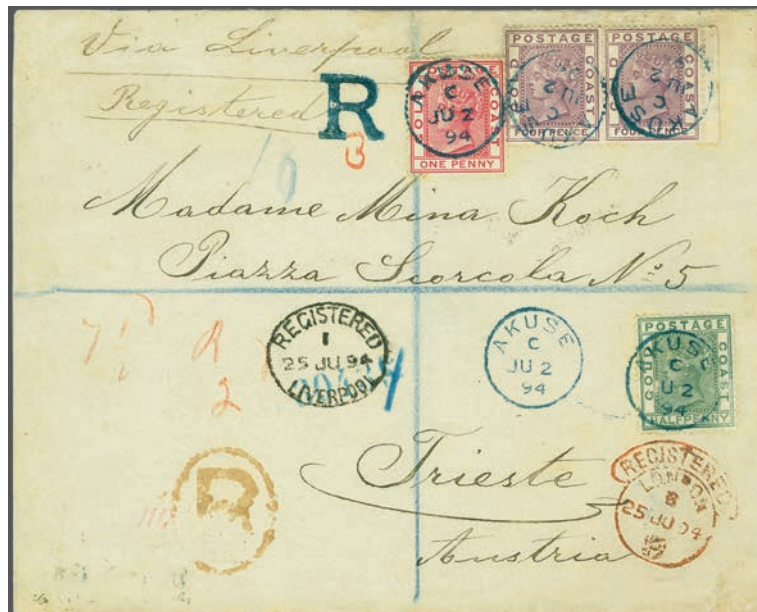 Via Liverpool
Registered
R
3
GOLD COAST
POSTAGE
ONE PENNY
AKUSE
C
JU 2
94
POSTAGE
GOLD COAST
FOUR PENCE
AKUSE
C
JU 2
POSTAGE
GOLD COAST
FOUR PENCE
AKUSE
C
JU 2
Madame Mina Koch
Piazza Scorcola No. 5
REGISTERED
1
25 JU 94
LIVERPOOL
AKUSE
C
JU 2
94
POSTAGE
GOLD COAST
HALFPENNY
AKUSE
C
JU 2
94
2
R
Trieste
REGISTERED
LONDON
25 JU 94
Austria